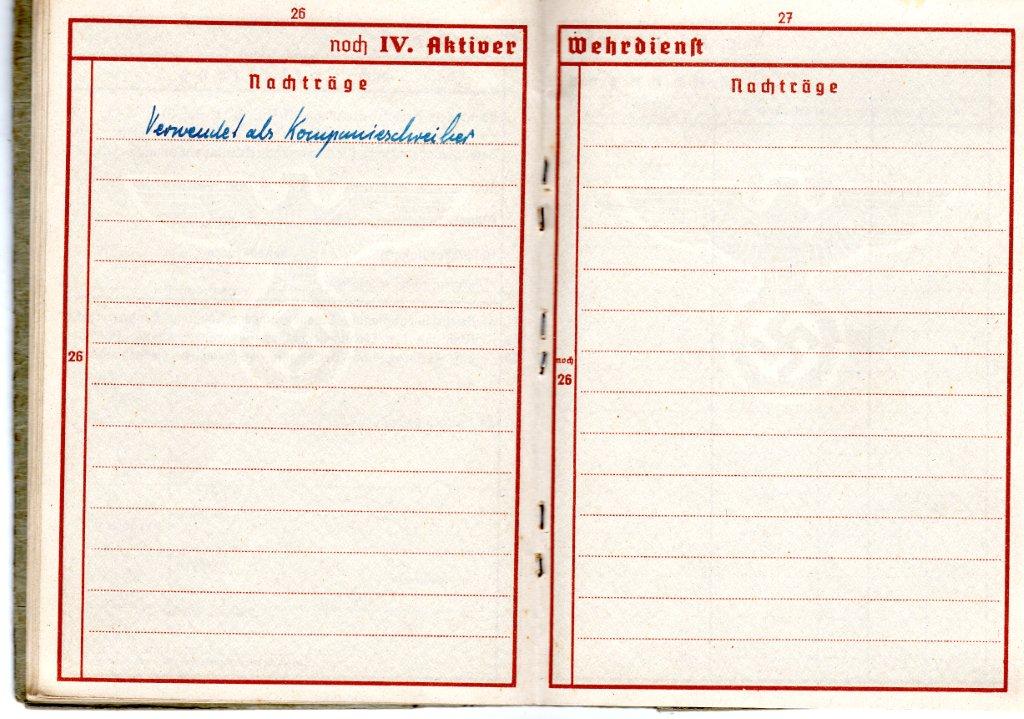 26
noch IV. Aktiver
Nachträge
Verwendet als Kompanieschreiber
26
27
Wehrdienst
Nachträge
noch
26